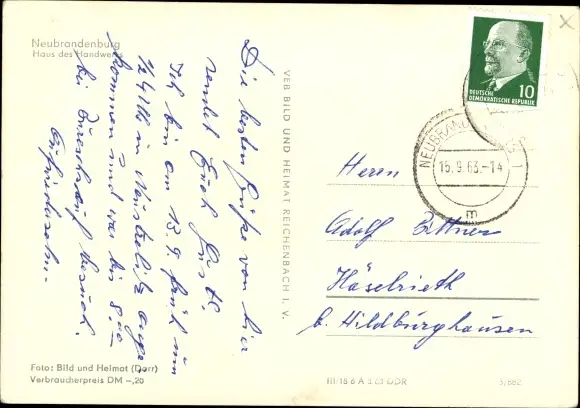 Neubrandenburg
Haus des Handwerks
Die besten Grüße von hier
sendet Euch
Ich bin am 13.9. früh um
1/2 4 Uhr in Neustrelitz ange-
kommen und war bis 8.00
bei besuch.
Auf Wiedersehn.
VEB BILD UND HEIMAT REICHENBACH I. V.
DEUTSCHE
DEMOKRATISCHE REPUBLIK
10
NEUBRANDENBURG 1
15.9.63.-14
m
Herrn
Adolf Bittner
Häselrieth
b. Hildburghausen
Foto: Bild und Heimat (Dörr)
Verbraucherpreis DM -,20
III/18 6 A 363 DDR
5/662